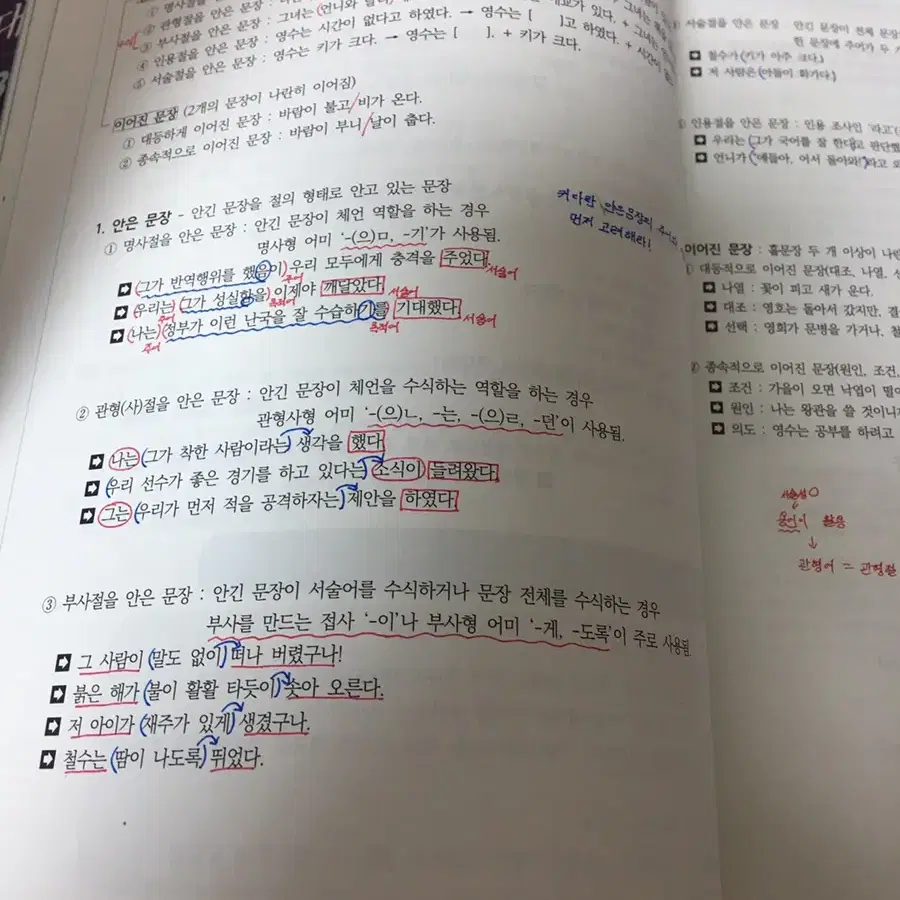 ① 명사절을 안은 문장 :
② 관형절을 안은 문장 : 그녀는 (언니와
③ 부사절을 안은 문장 : 영수는 시간이 없다고 하였다. → 영수는 [ ]고 하였다. + 시간이
④ 인용절을 안은 문장 : 영수는 키가 크다. → 영수는 [ ]. + 키가 크다.
⑤ 서술절을 안은 문장 :
이어진 문장 (2개의 문장이 나란히 이어짐)
① 대등하게 이어진 문장 : 바람이 불고/비가 온다.
② 종속적으로 이어진 문장 : 바람이 부니/날이 춥다.
1. 안은 문장 - 안긴 문장을 절의 형태로 안고 있는 문장
커다란 안은문장의 주어
먼저 고려해라!
① 명사절을 안은 문장 : 안긴 문장이 체언 역할을 하는 경우
명사형 어미 '-(으)ㅁ, -기'가 사용됨.
➡ (그가 반역행위를 했음이) 우리 모두에게 충격을 주었다.
주어 서술어
➡ (우리는 (그가 성실함을) 이제야 깨달았다.
주어 목적어 서술어
➡ (나는) (정부가 이런 난국을 잘 수습하기를 기대했다.
주어 목적어 서술어
② 관형(사)절을 안은 문장 : 안긴 문장이 체언을 수식하는 역할을 하는 경우
관형사형 어미 '-(으)ㄴ, -는, -(으)ㄹ, -던'이 사용됨.
➡ 나는 (그가 착한 사람이라는) 생각을 했다.
➡ (우리 선수가 좋은 경기를 하고 있다는) 소식이 들려왔다.
➡ 그는 (우리가 먼저 적을 공격하자는) 제안을 하였다.
③ 부사절을 안은 문장 : 안긴 문장이 서술어를 수식하거나 문장 전체를 수식하는 경우
부사를 만드는 접사 '-이'나 부사형 어미 '-게, -도록'이 주로 사용됨.
➡ 그 사람이 (말도 없이) 떠나 버렸구나!
➡ 붉은 해가 (불이 활활 타듯이) 솟아 오른다.
➡ 저 아이가 (재주가 있게) 생겼구나.
➡ 철수는 (땀이 나도록) 뛰었다.
서술절을 안은 문장 안긴 문장이 전체 문장
한 문장에 주어가 두
➡ 철수가 (키가 아주 크다.)
➡ 저 사람은 (아들이 화가다.)
인용절을 안은 문장 : 인용 조사인 '라고'
➡ 우리는 (그가 국어를 잘 한다)고 판단했
➡ 언니가 ("얘들아, 어서 돌아와!")라고
이어진 문장 : 홑문장 두 개 이상이
① 대등적으로 이어진 문장(대조, 나열,
➡ 나열 : 꽃이 피고 새가 운다.
➡ 대조 : 영호는 돌아서 갔지만,
➡ 선택 : 영희가 문병을 가거나,
② 종속적으로 이어진 문장(원인, 조건,
➡ 조건 : 가을이 오면 낙엽이
➡ 원인 : 나는 왕관을 쓸 것이니
➡ 의도 : 영수는 공부를 하려고
서술성 ○
용언이 활용
↓
관형어 = 관형절